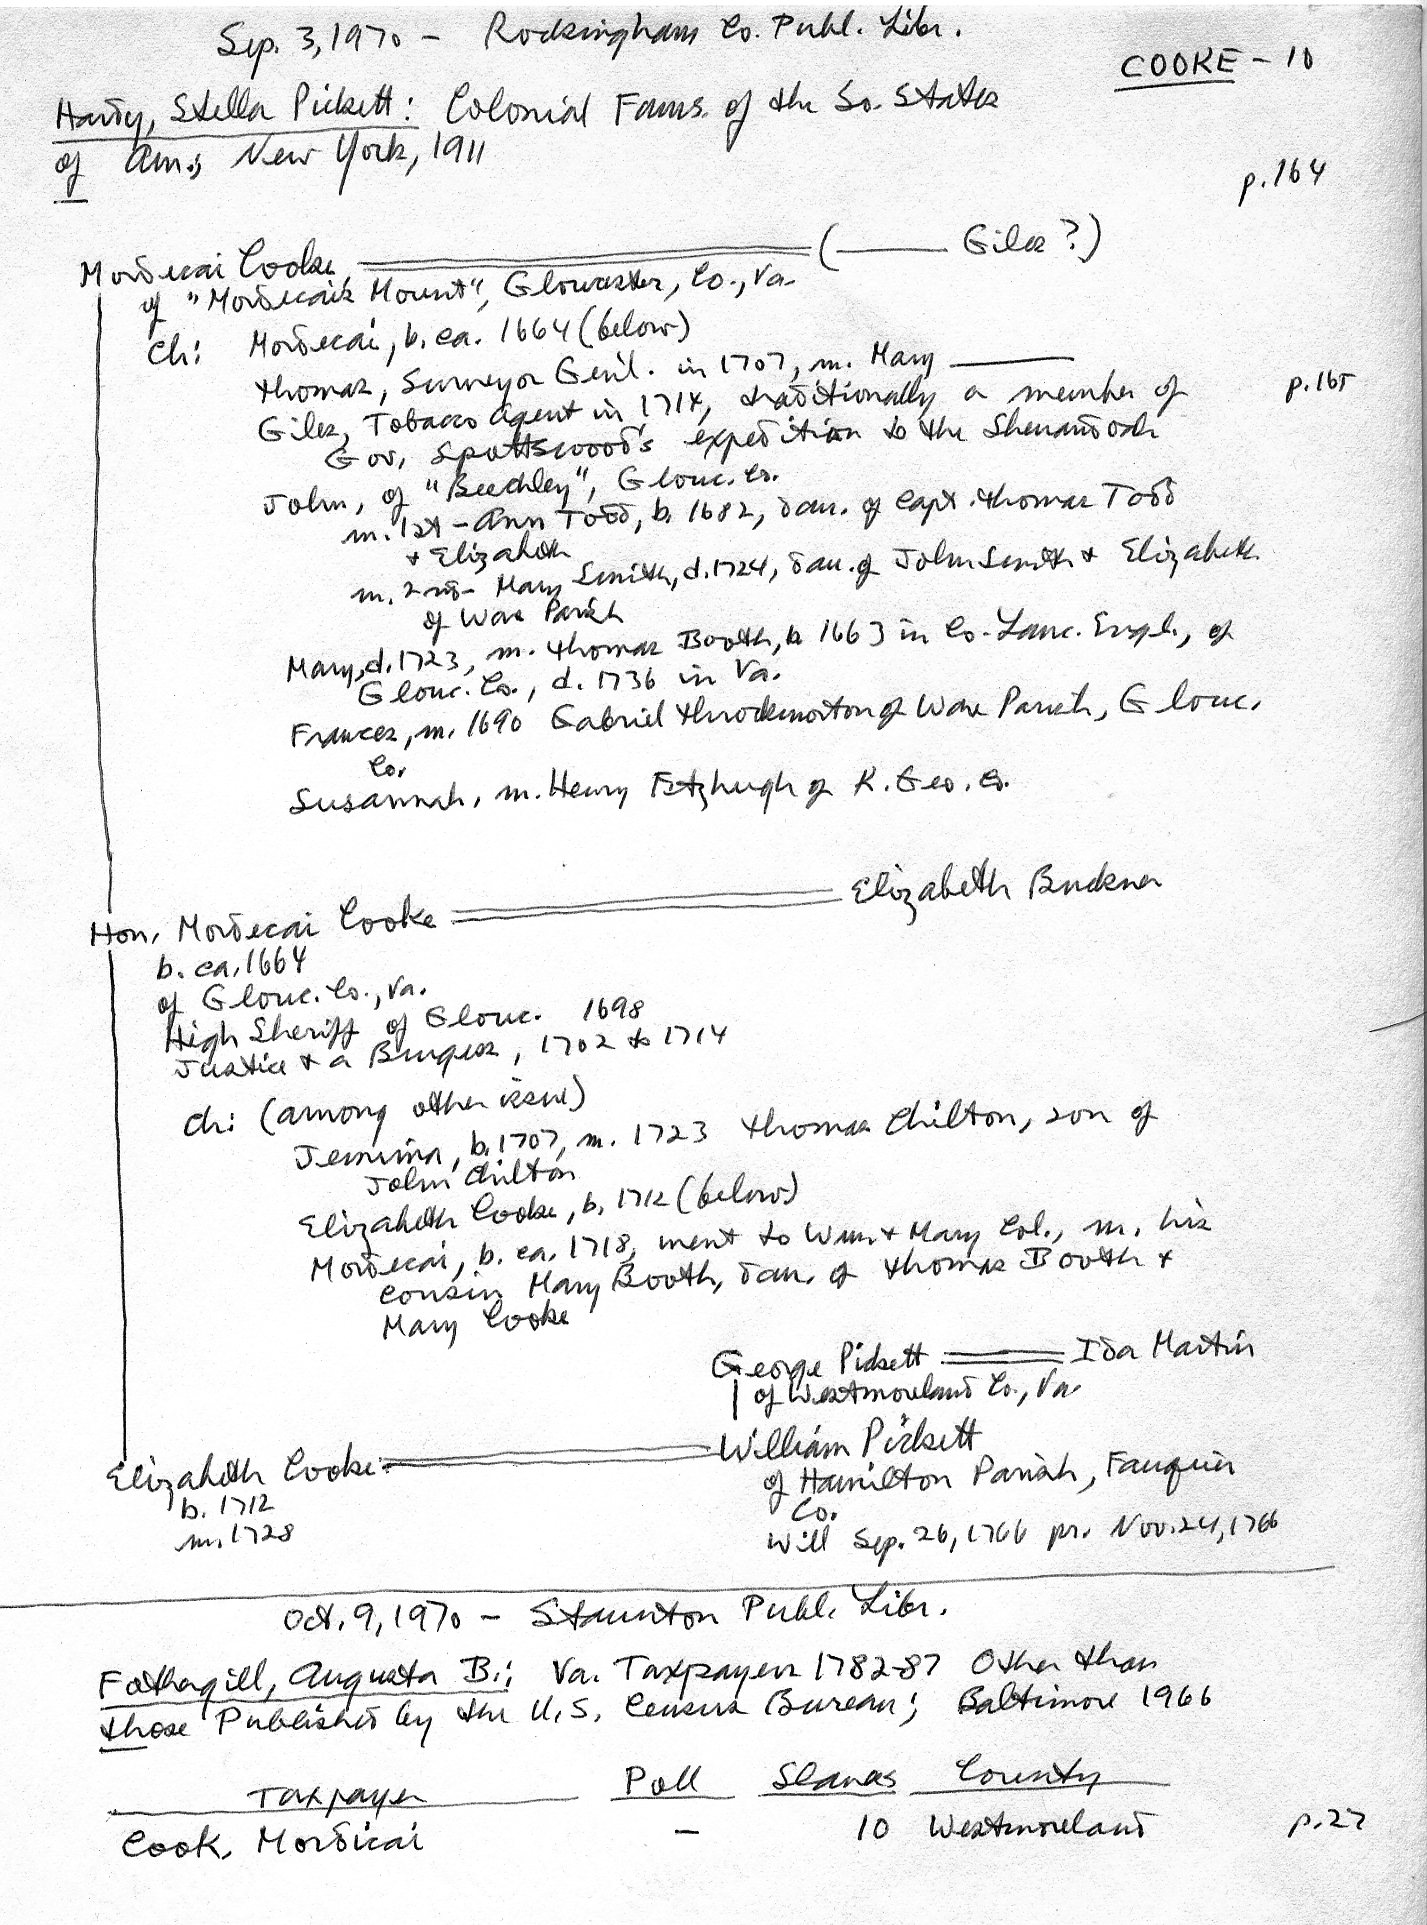 Sep. 3, 1970 - Rockingham Co. Publ. Libr.
COOKE - 10
Hardy, Stella Pickett: Colonial Fams. of the So. States
of Am.; New York, 1911
p.164
Mordecai Cooke (—— Giles?)
of "Mordecai's Mount", Gloucester, Co., Va.
Ch: Mordecai, b. ca. 1664 (below)
Thomas, Surveyor Genl. in 1707, m. Mary ——
Giles, Tobacco Agent in 1714, traditionally a member of
p.165
Gov. Spottswood's expedition to the Shenandoah
John, of "Beechley", Glouc. Co.
m. 1st - Ann Todd, b. 1682, dau. of Capt. Thomas Todd
+ Elizabeth
m. 2nd - Mary Smith, d. 1724, dau. of John Smith + Elizabeth
of Ware Parish
Mary, d. 1723, m. Thomas Booth, b 1663 in Co. Lanc. Engl., of
Glouc. Co., d. 1736 in Va.
Frances, m. 1690 Gabriel Throckmorton of Ware Parish, Glouc.
Co.
Susannah, m. Henry Fitzhugh of K. Geo. Co.
Hon. Mordecai Cooke Elizabeth Buckner
b. ca. 1664
of Glouc. Co., Va.
High Sheriff of Glouc. 1698
Justice + a Burgess, 1702 to 1714
Ch: (among other issue)
Jemima, b. 1707, m. 1723 Thomas Chilton, son of
John Chilton
Elizabeth Cooke, b. 1712 (below)
Mordecai, b. ca. 1718, went to Wm + Mary Col., m. his
cousin Mary Booth, dau. of Thomas Booth +
Mary Cooke
George Pickett Ida Martin
of Westmoreland Co., Va.
Elizabeth Cooke William Pickett
b. 1712
m. 1728
of Hamilton Parish, Fauquier
Co.
Will Sep. 26, 1766 pr. Nov. 24, 1766
Oct. 9, 1970 - Staunton Publ. Libr.
Fothergill, Augusta B.; Va. Taxpayers 1782-87 Other than
those Published by the U.S. Census Bureau; Baltimore 1966
Taxpayer Poll Slaves County
Cook, Mordicai - 10 Westmoreland p.27